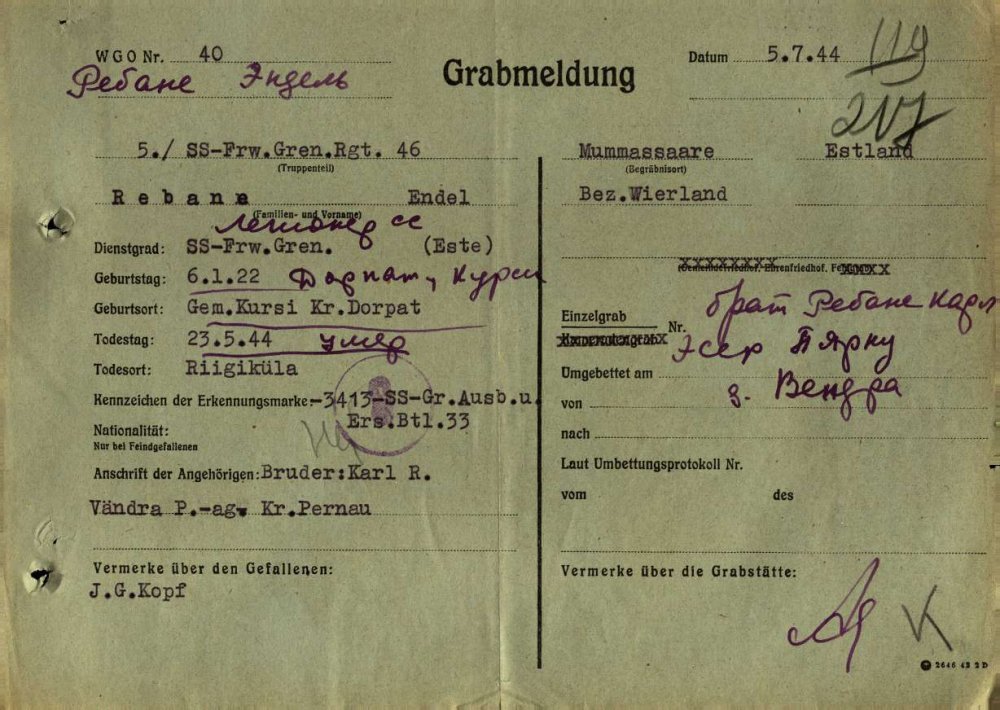 WGO Nr. 40
Ребане Эндель
Grabmeldung
Datum 5.7.44
119
217
5./ SS-Frw.Gren.Rgt. 46
(Truppenteil)
Rebane Endel
(Familien- und Vorname)
легионер сс
Dienstgrad: SS-Frw.Gren. (Este)
Geburtstag: 6.1.22 Дорпат, Курси
Geburtsort: Gem.Kursi Kr.Dorpat
Todestag: 23.5.44 умер
Todesort: Riigiküla
Kennzeichen der Erkennungsmarke:-3413-SS-Gr.Ausb.u.
Ers.Btl.33
Nationalität:
Nur bei Feindgefallenen
Anschrift der Angehörigen: Bruder:Karl R.
Vändra P.-ag. Kr.Pernau
Vermerke über den Gefallenen:
J.G.Kopf
Mummassaare Estland
(Begräbnisort)
Bez.Wierland
(Gemeindefriedhof, Ehrenfriedhof,
брат Ребане Карл
Einzelgrab
Nr.
Эсер Пярну
Umgebettet am
з. Вендра
von
nach
Laut Umbettungsprotokoll Nr.
vom des
Vermerke über die Grabstätte:
K
2646 43 2 D